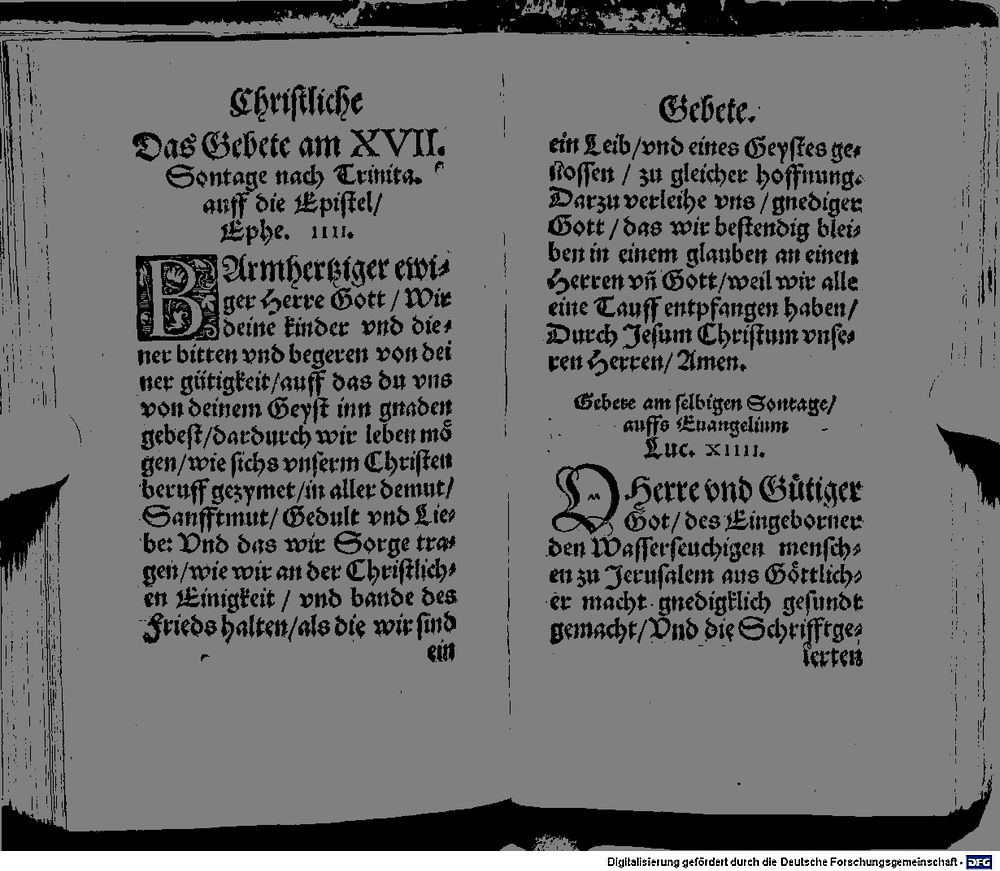 Christliche
Das Gebete am XVII.
Sontage nach Trinita.
auff die Epistel/
Ephe. IIII.
BArmhertziger ewi⸗
ger Herre Gott / Wir
deine kinder vnd die⸗
ner bitten vnd begeren von dei
ner gütigkeit/auff das du vns
von deinem Geyst inn gnaden
gebest/dardurch wir leben mö
gen/wie sichs vnserm Christen
beruff gezymet/in aller demut/
Sanfftmut/ Gedult vnd Lie⸗
be: Vnd das wir Sorge tra⸗
gen/wie wir an der Christlich⸗
en Einigkeit / vnd bande des
Frieds halten/als die wir sind
ein
Gebete.
ein Leib/vnd eines Geystes ge⸗
nossen / zu gleicher hoffnung.
Darzu verleihe vns / gnediger
Gott / das wir bestendig blei⸗
ben in einem glauben an einen
Herren vn̄ Gott/weil wir alle
eine Tauff entpfangen haben/
Durch Jesum Christum vnse⸗
ren Herren/ Amen.
Gebete am selbigen Sontage/
auffs Euangelium
Luc. XIIII.
O Herre vnd Gütiger
Got/ des Eingeborner
den Wasserseuchigen mensch⸗
en zu Jerusalem aus Göttlich⸗
er macht gnedigklich gesundt
gemacht/Vnd die Schrifftge⸗
lerten
Digitalisierung gefördert durch die Deutsche Forschungsgemeinschaft - DFG